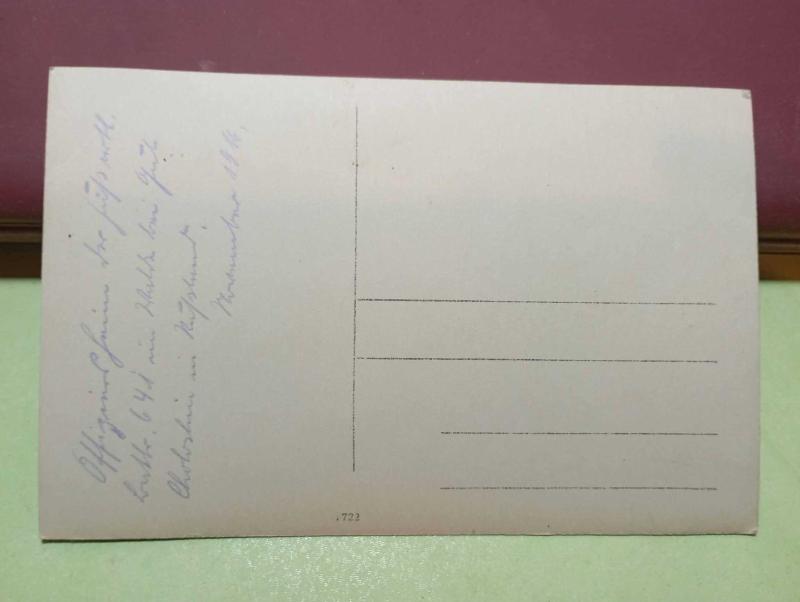 Offiziersheim der Fußartl.
Battr. 641 im Walde bei Gut
in Rußland.
November 1916.
722